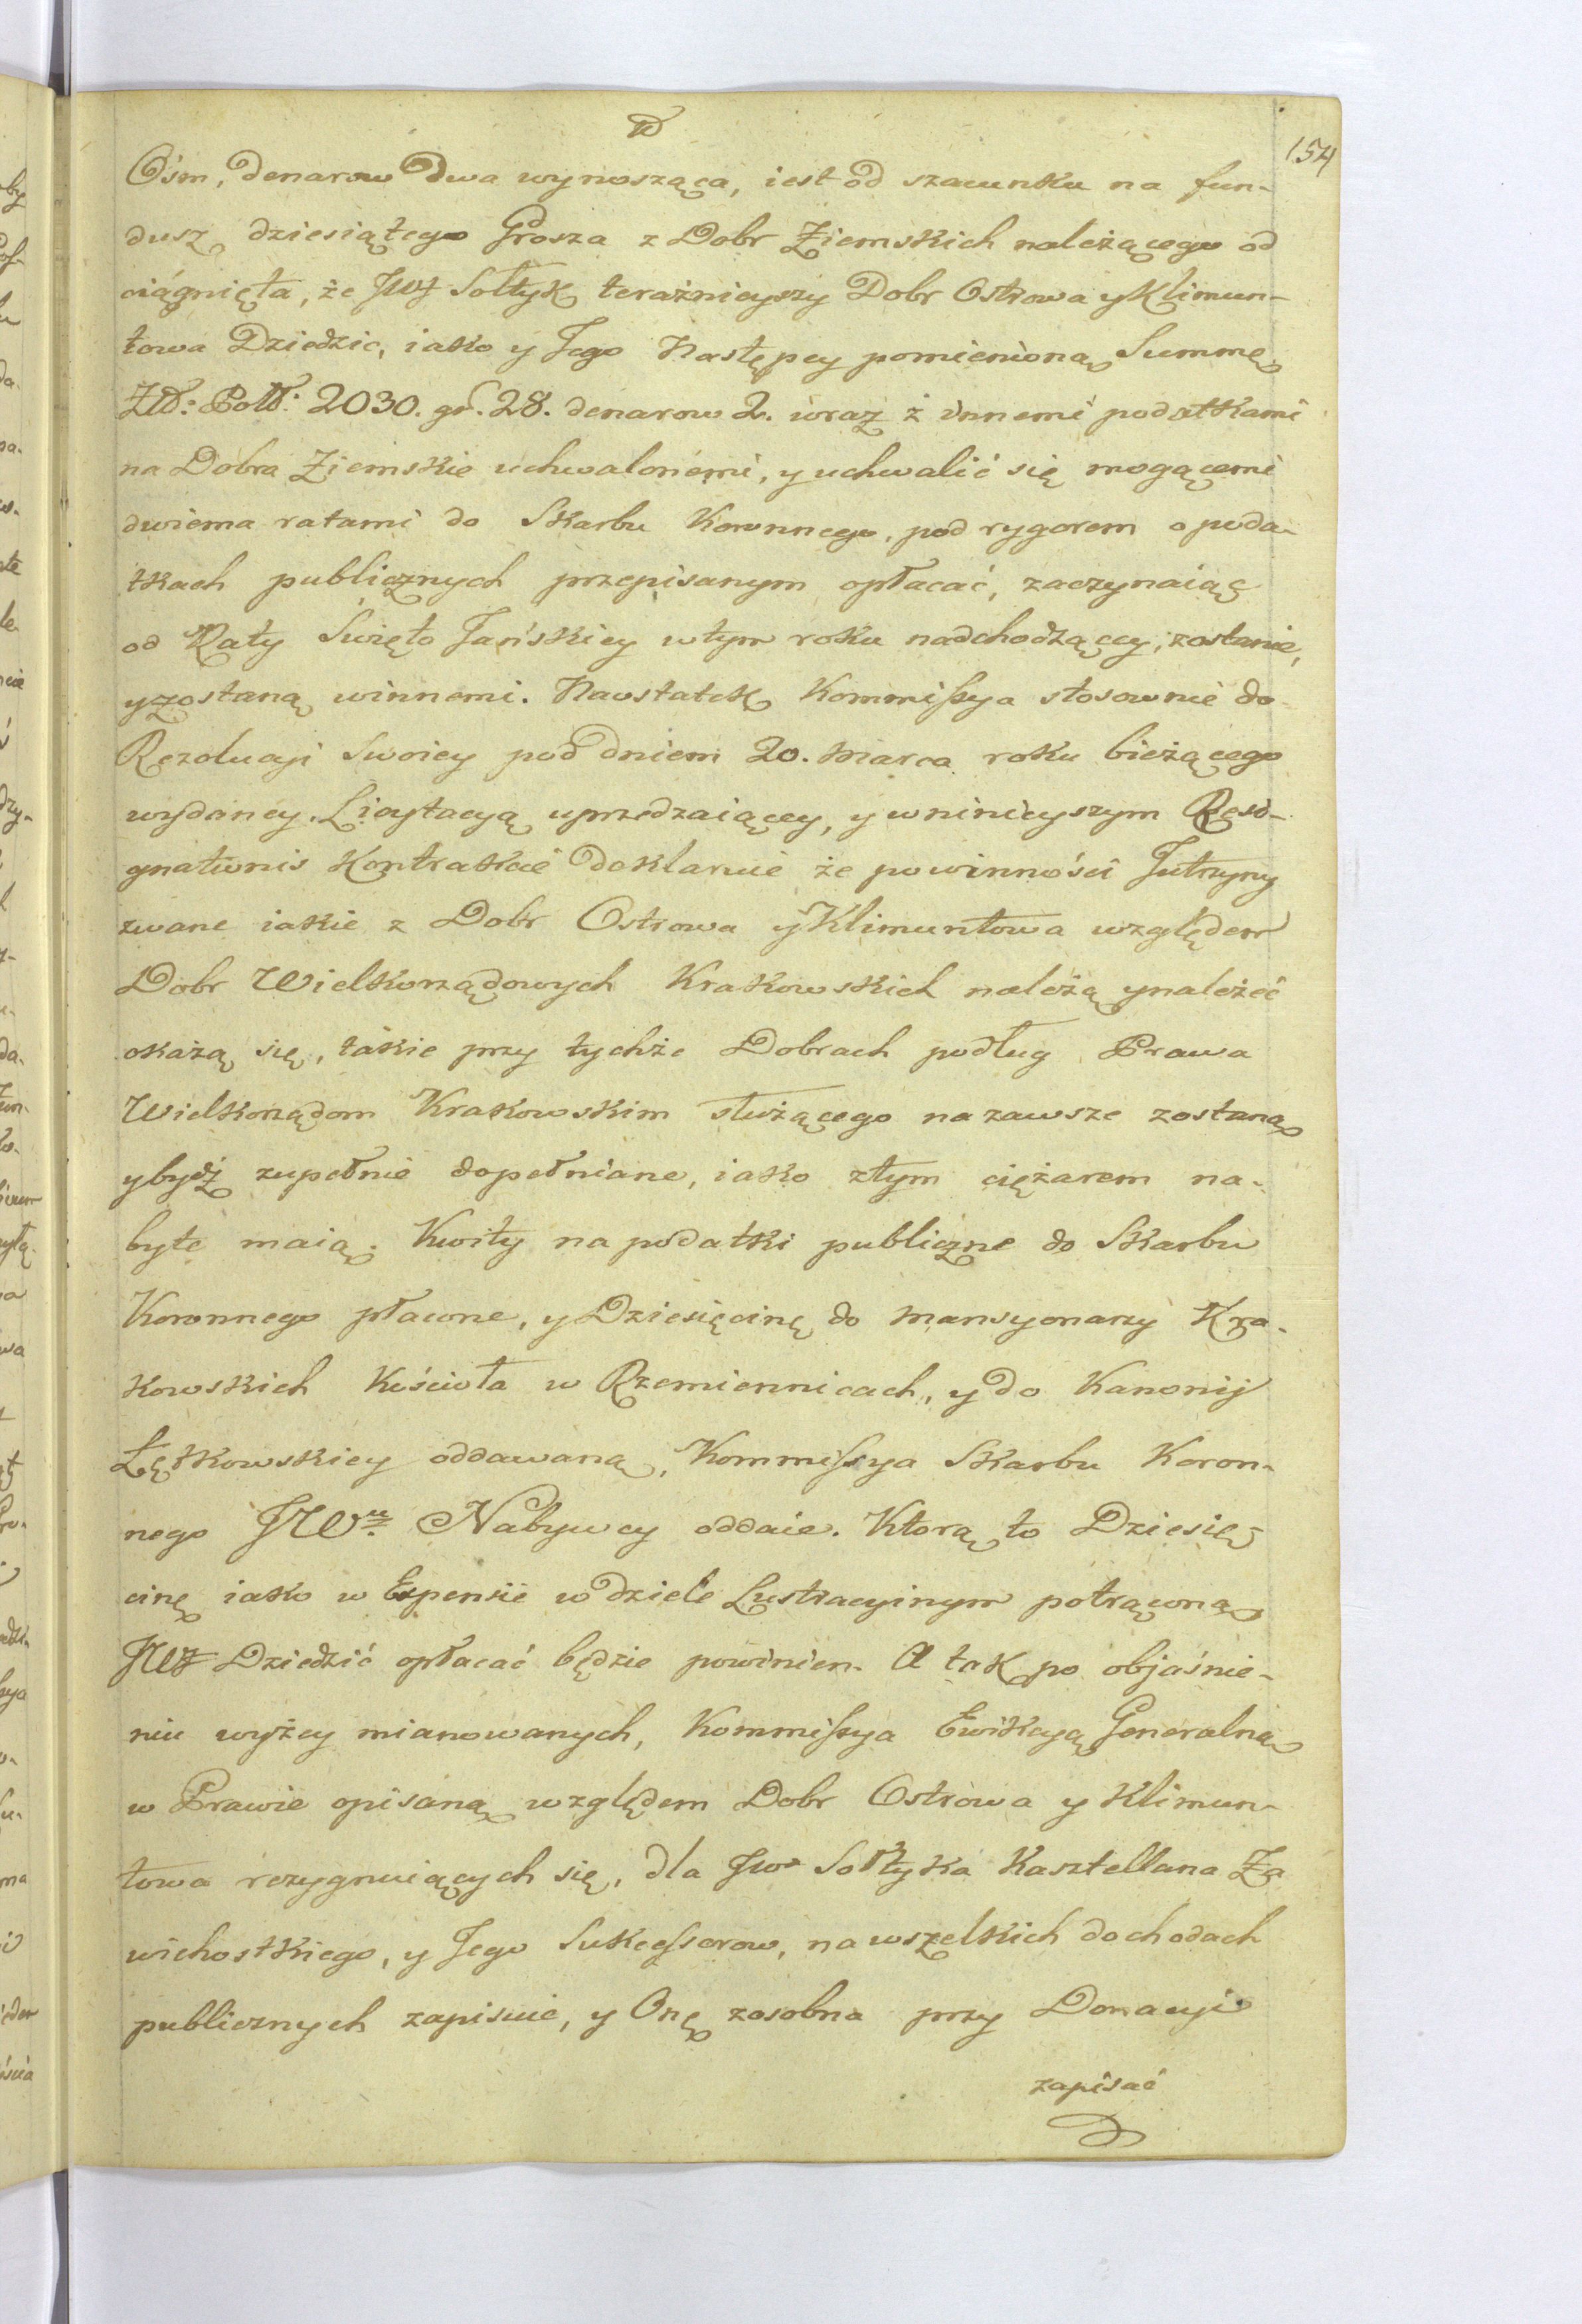 154
Ośm, denarow dwa wynosząca, iest od szacunku na fun-
dusz dziesiątego Grosza z Dobr Ziemskich należącego od
ciągnięta, że JWJ Sołtyk teraźnieyszy Dobr Ostrowa y Klimun-
towa Dziedzic, iako y Jego Następcy pomienioną Summę
Złł: Poll: 2030. gr. 28. denarow 2. wraz z innemi podatkami
na Dobra Ziemskie uchwalonemi, y uchwalić się mogącemi
dwiema ratami do Skarbu Koronnego, pod rygorem o poda-
tkach publicznych przepisanym opłacać, zaczynaiąc
od Raty Święto Jańskiey w tym roku nadchodzącey, zostanie,
y zostaną winnemi. Naostatek Kommissya stosownie do
Rezolucyi Swoiey pod dniem 20. Marca roku bieżącego
wydaney, Licytacyą uprzedzaiącey, y w ninieyszym Resi-
gnationis Kontrakcie deklaruie że powinności Jutrzyny
zwane iakie z Dobr Ostrowa y Klimuntowa względem
Dobr Wielkorządowych Krakowskich należą y należeć
okażą się, takie przy tychże Dobrach podług Prawa
Wielkorządom Krakowskim służącego na zawsze zostaną
y bydź zupełnie dopełniane, iako z tym ciężarem na-
byte maią. Kwity na podatki publiczne do Skarbu
Koronnego płacone, y Dziesięcinę do Mansyonarzy Kra-
kowskich Kościoła w Rzemiennicach, y do Kanonij
Łętkowskiey oddawaną, Kommissya Skarbu Koron-
nego JWu Nabywcy oddaie. Którą to Dziesię-
cinę iako w Expensie w dziele Lustracyinym potrąconą
JWJ Dziedzić opłacać będzie powinien. A tak po objaśnie-
niu wyżey mianowanych, Kommissya Ewikcyą Generalną
w Prawie opisaną względem Dobr Ostrowa y Klimun-
towa rezygnuiących się, dla JW Sołtyka Kasztellana Za
wichostkiego, y Jego Sukcessorow, na wszelkich dochodach
publicznych zapisuie, y Onę zosobna przy Donacyi
zapisać